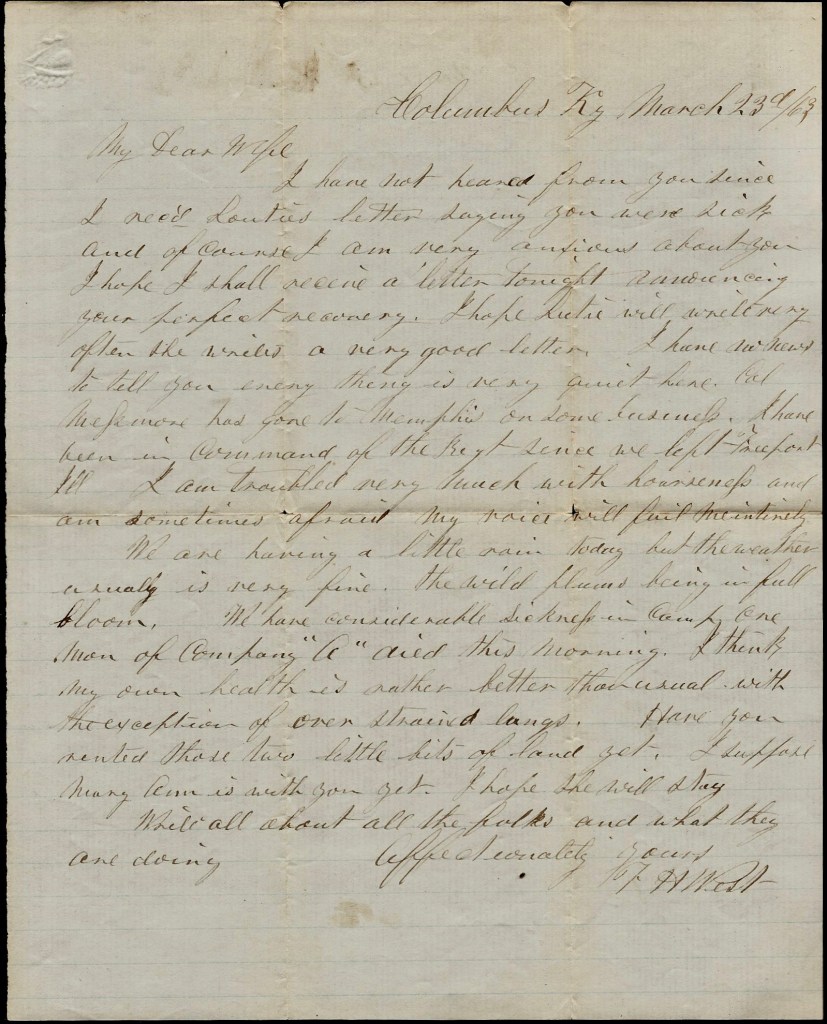 Columbus Ky March 23d/63
My Dear Wife
I have not heared from you since
I rec'd Louties letter saying you were sick
and of course I am very anxious about you
I hope I shall receive a letter tonight announcing
your perfect recovery. I hope Lutie will write very
often she writes a very good letter. I have no news
to tell you every thing is very quiet here. Col
Messmore has gone to Memphis on some business. I have
been in command of the Regt since we left Freeport
Ill I am troubled very much with hoarseness and
am sometimes afraid my voice will fail me intirely
We are having a little rain today but the weather
usualy is very fine. the wild plums being in full
bloom. We have considerable sickness in Camp, one
man of Company "A" died this morning. I think
my own health is rather better than usual with
the exception of over strained lungs. Have you
rented those two little bits of land yet. I suppose
Mary Ann is with you yet. I hope she will stay
Write all about all the folks and what they
are doing Affectionately yours
F H West